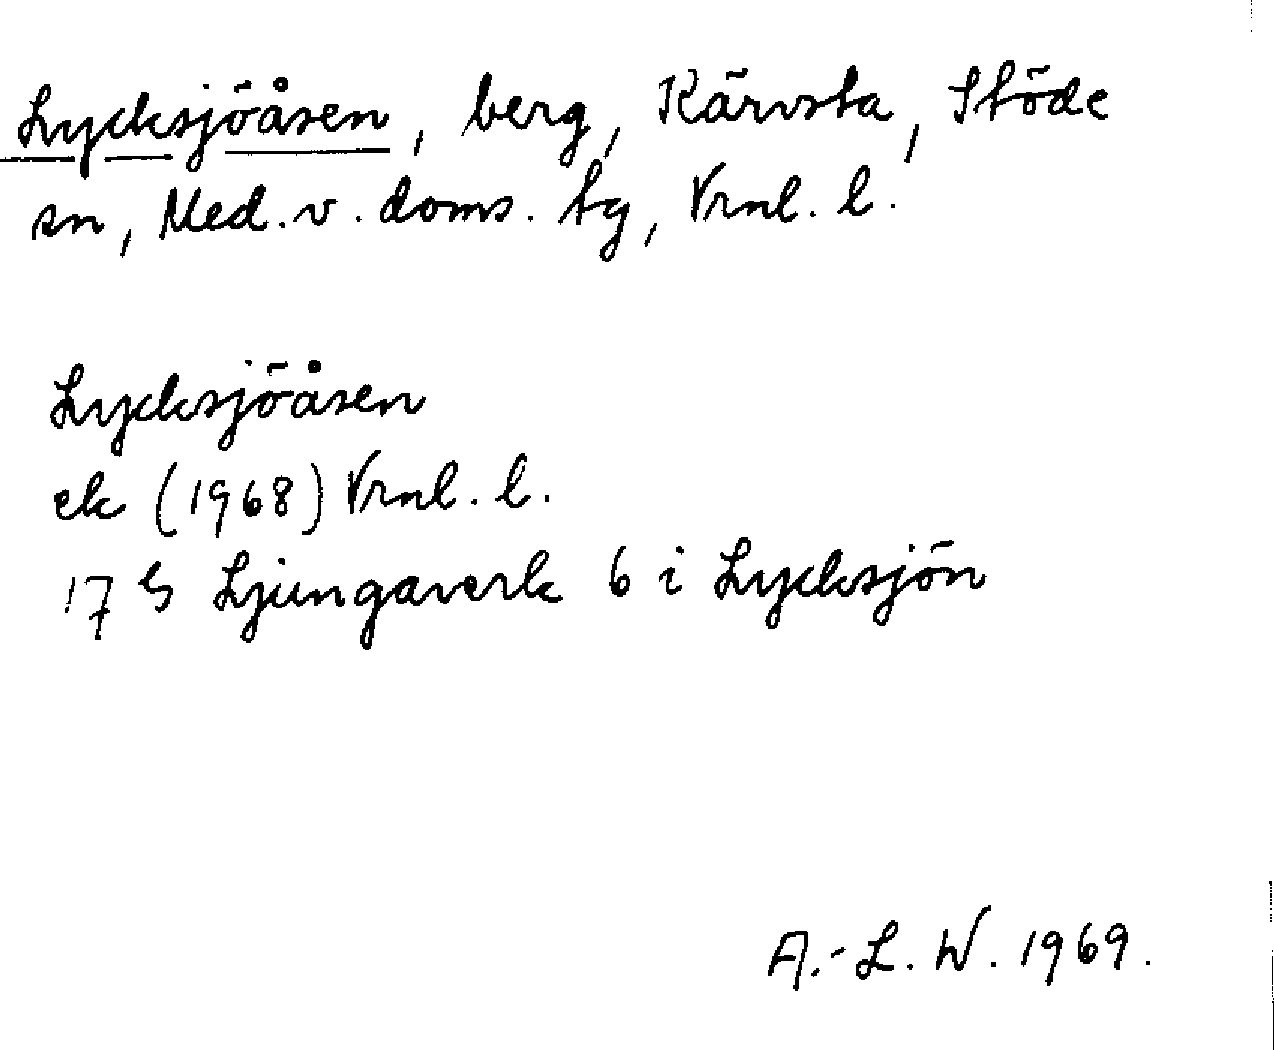 Lycksjöåsen, berg, Kärvsta, Stöde
sn, Med. v. doms. tg, Vrnl. l.
Lycksjöåsen
ek (1968) Vrnl. l.
17 G Ljungaverk 6 i Lycksjön
A.-L. W. 1969.